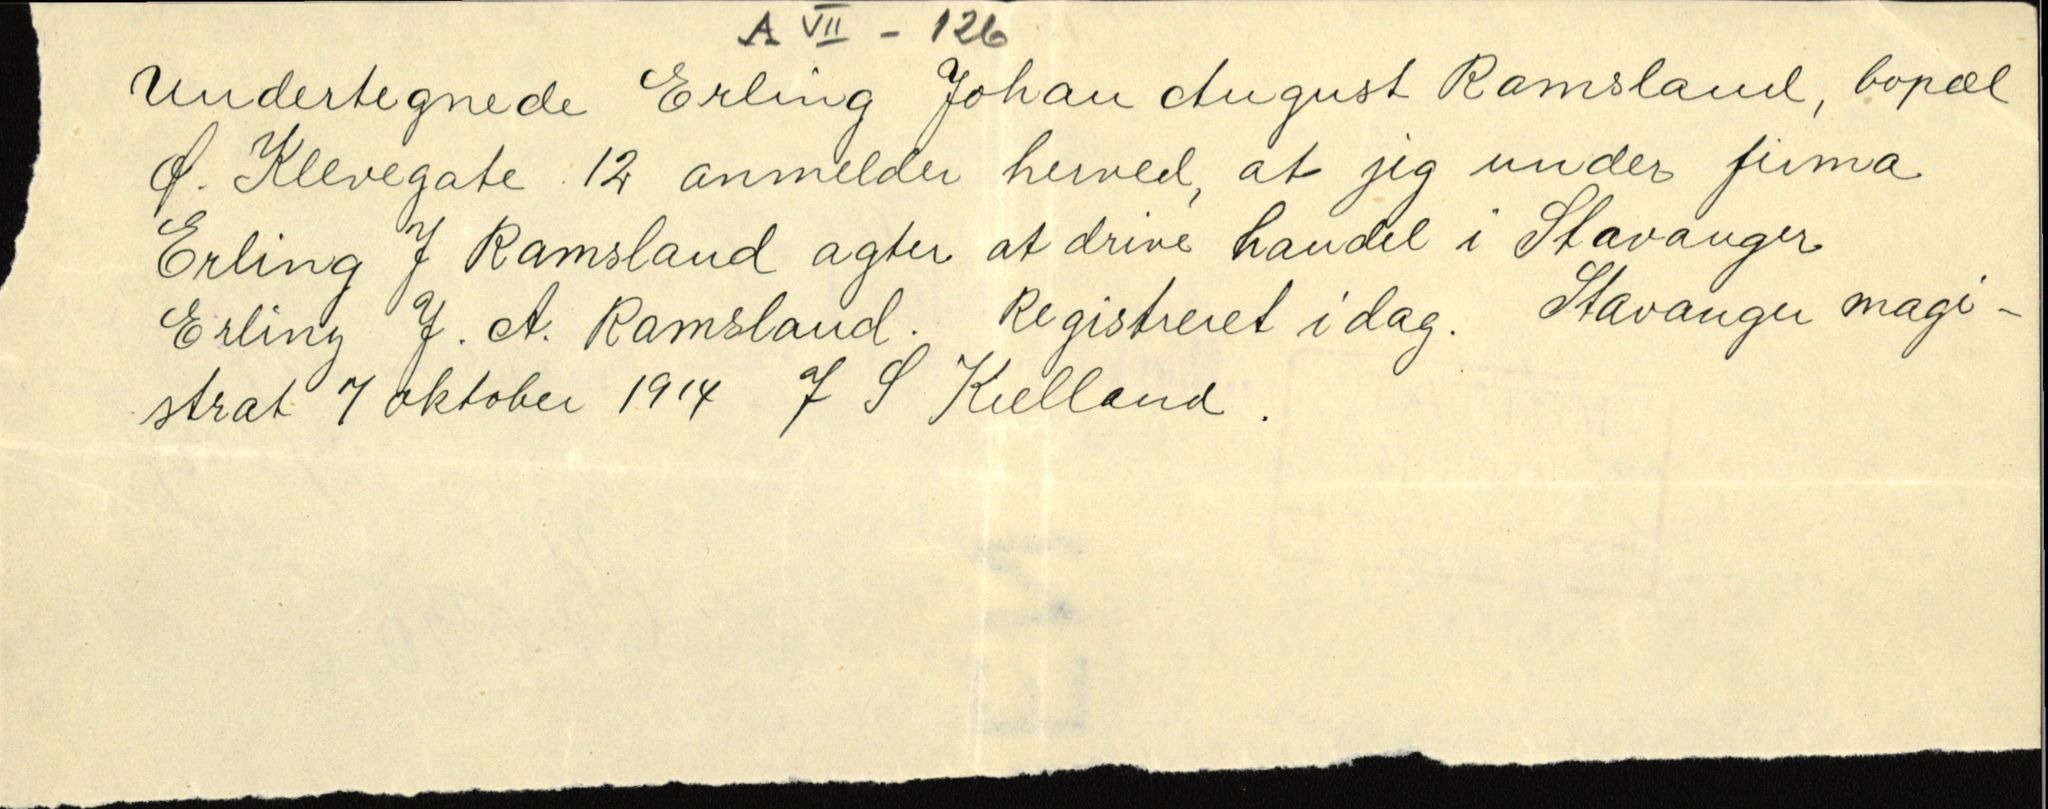 A VII - 126
Undertegnede Erling Johan August Ramsland, bopæl
Ø. Klevegate 12 anmelder herved, at jeg under firma
Erling J Ramsland agter at drive handel i Stavanger
Erling J. A. Ramsland. Registreret idag. Stavanger magi-
strat 7 oktober 1914 J S Kielland.